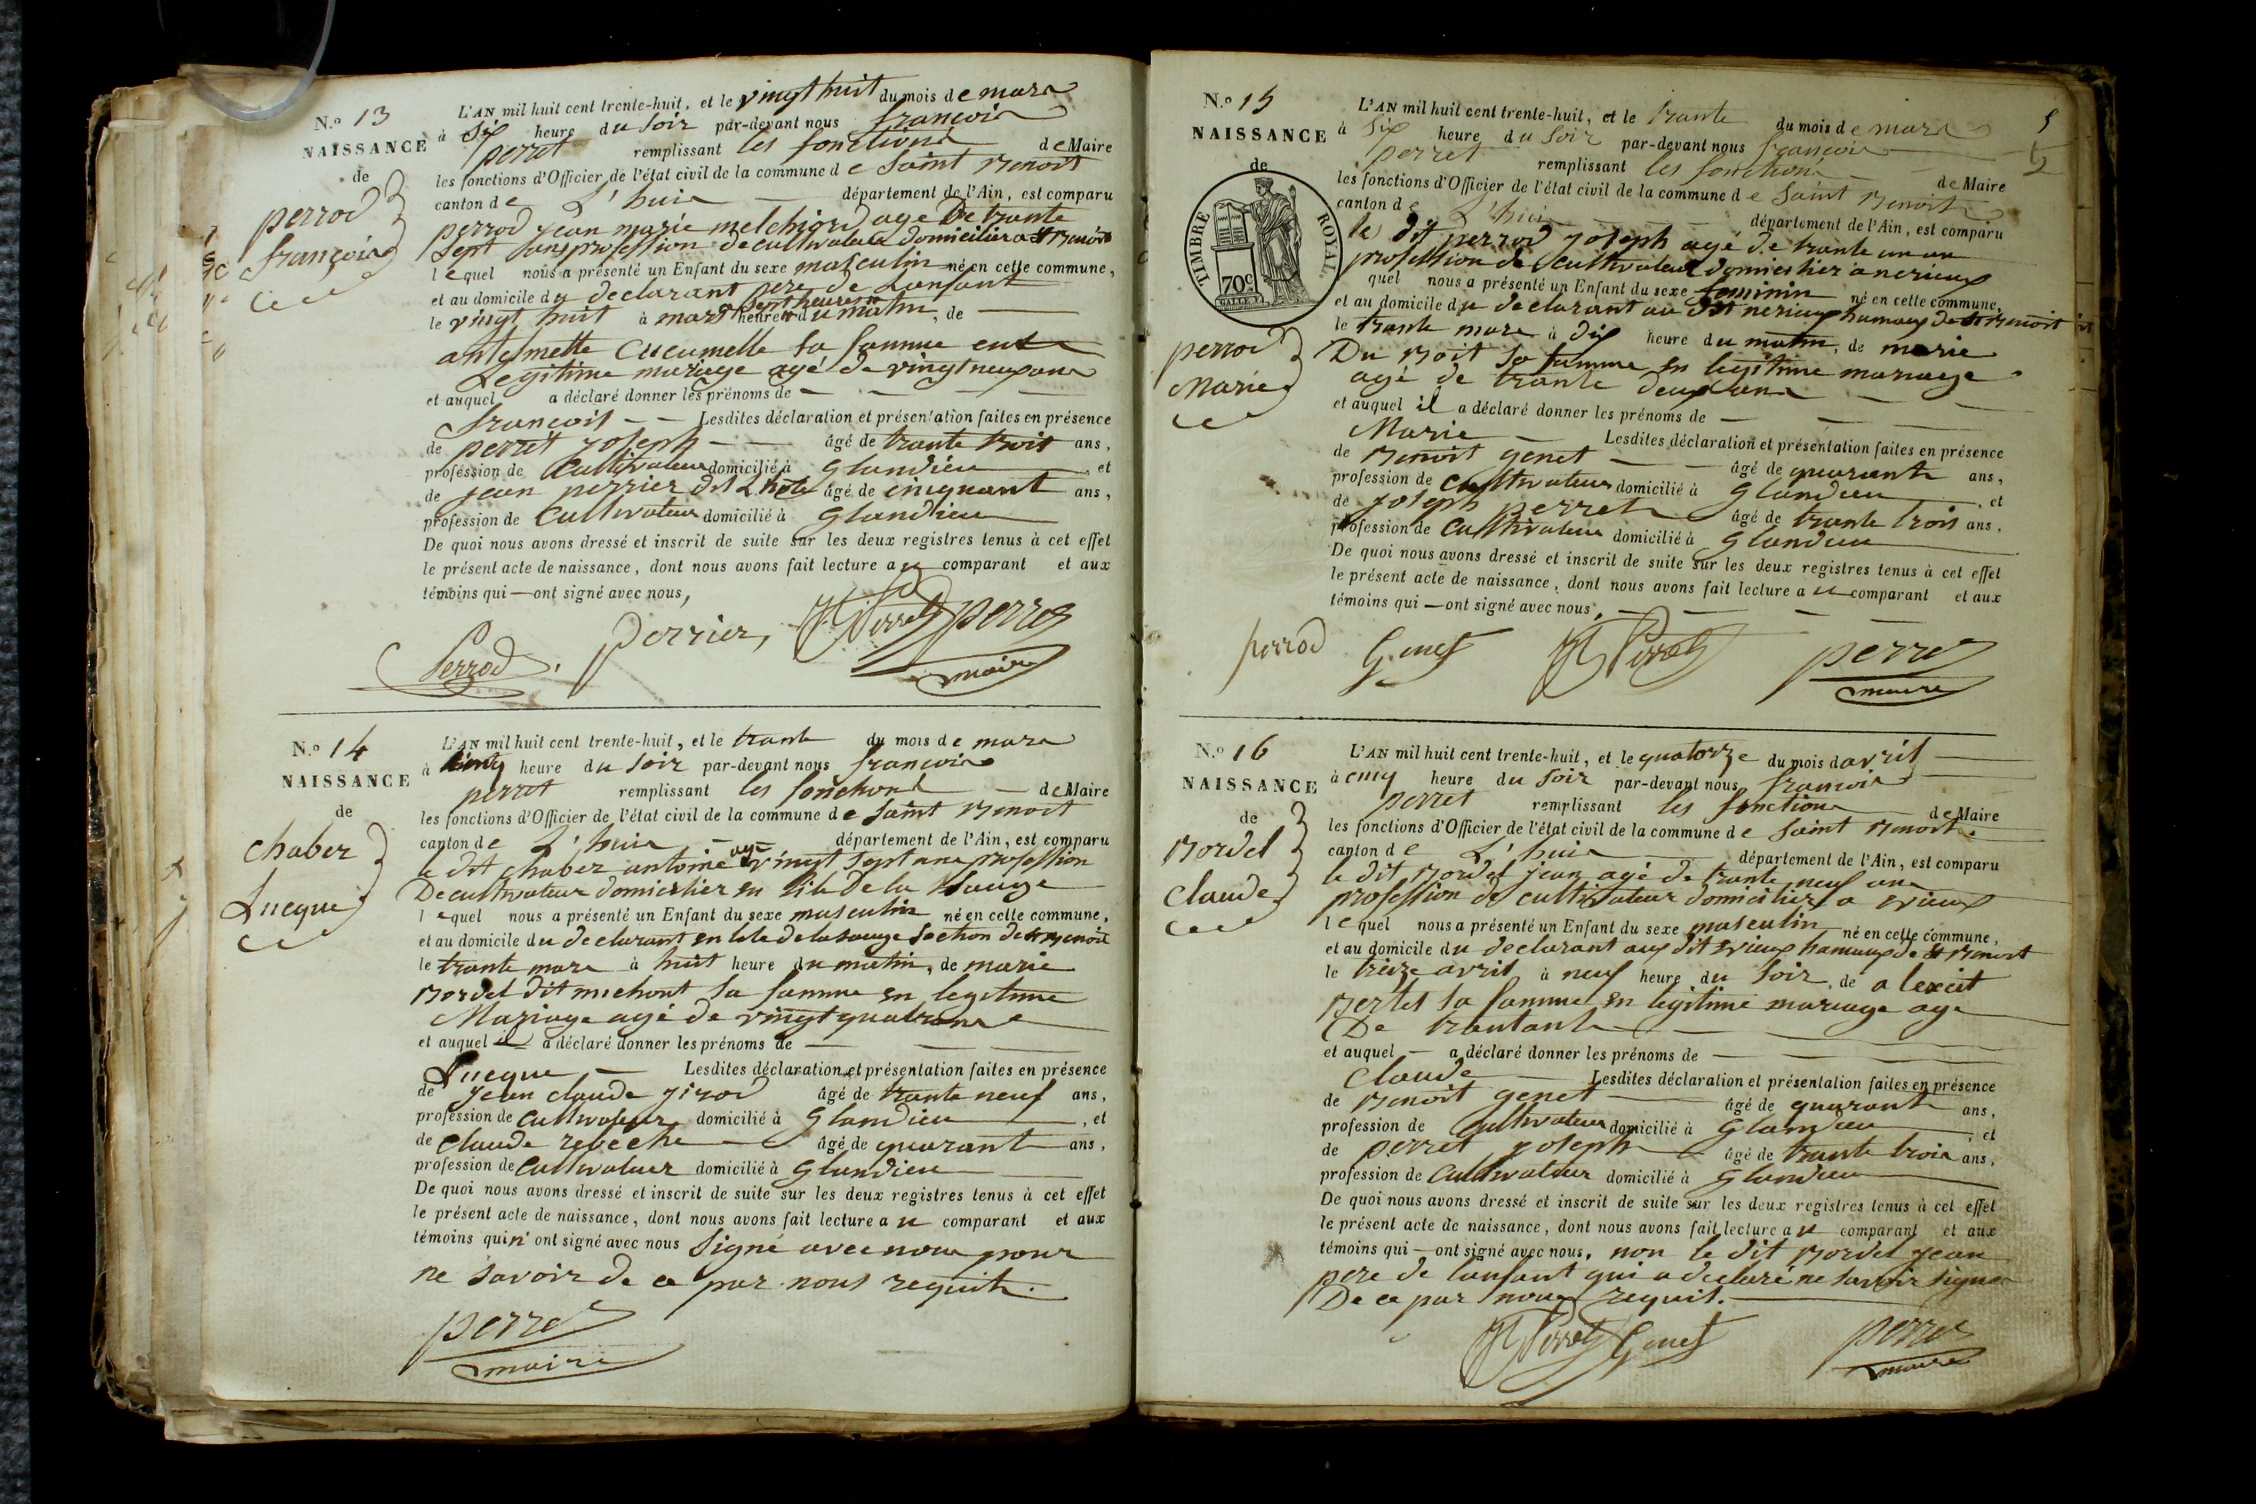 N.º 13
NAISSANCE
de
perrod
françois
L'AN mil huit cent trente-huit, et le vingt huit du mois de mars
à six heure du soir par-devant nous françois
perret remplissant les fonctions de Maire
les fonctions d'Officier de l'état civil de la commune de saint Benoit
canton de L'huis département de l'Ain, est comparu
perrod jean marie melchiord agé de trante
sept sans profession de cultivateur domicilier a st Benoit
lequel nous a présenté un Enfant du sexe masculin né en cette commune,
et au domicile du declarant pere de Lanfant
le vingt huit à mars sept heures heure du matin, de
anthelmette Cucumelle sa famme en
Legitime mariage agé de vingt neuf ans
et auquel a déclaré donner les prénoms de
françois Lesdites déclaration et présentation faites en présence
de perret joseph âgé de trante trois ans,
profession de Cultivateur domicilié à glandieu et
de jean perrier dit âgé de cinquant ans,
profession de Cultivateur domicilié à glandieu
De quoi nous avons dressé et inscrit de suite sur les deux registres tenus à cet effet
le présent acte de naissance, dont nous avons fait lecture au comparant et aux
témoins qui ont signé avec nous,
Perrod. perrier, Perret perret
maire
N.º 14
NAISSANCE
de
chaber
Lucque
L'AN mil huit cent trente-huit, et le trante du mois de mars
à cinq heure du soir par-devant nous françois
perret remplissant les fonctions de Maire
les fonctions d'Officier de l'état civil de la commune de saint Benoit
canton de L'huis département de l'Ain, est comparu
le dit chaber antoine age vingt sept ans profession
De cultivateur domicilier en l'ile de la Sauge
lequel nous a présenté un Enfant du sexe masculin né en cette commune,
et au domicile du declarant en lile de la sauge section de st Benoit
le trante mars à huit heure du matin, de marie
Bordel dit michont sa famme en legitime
Mariage agé de vingt quatre ans
et auquel il a déclaré donner les prénoms de
Lucque Lesdites déclaration et présentation faites en présence
de jean claude jirod âgé de trante neuf ans,
profession de Cultivateur domicilié à glandieu, et
de claude rebeche âgé de quarant ans,
profession de Cultivateur domicilié à glandieu
De quoi nous avons dressé et inscrit de suite sur les deux registres tenus à cet effet
le présent acte de naissance, dont nous avons fait lecture au comparant et aux
témoins qui n' ont signé avec nous signé avec nous pour
ne savoir de ce par nous requit.
perret
maire
N.º 15
NAISSANCE
de
TIMBRE ROYAL.
70c
perrod
Marie
5
L'AN mil huit cent trente-huit, et le trante du mois de mars
à six heure du soir par-devant nous françois
perret remplissant les fonctions de Maire
les fonctions d'Officier de l'état civil de la commune de saint Benoit
canton de L'huis département de l'Ain, est comparu
le dit perrod joseph agé de trante un an
profession de Cultivateur domicilier a nerieux
quel nous a présenté un Enfant du sexe feminin né en cette commune,
et au domicile du declarant au dit nerieux hamaux de st Benoit
le trante mars à dix heure du matin, de marie
Du Boit sa famme en legitime mariage
agé de trante deux ans
et auquel il a déclaré donner les prénoms de
Marie Lesdites déclaration et présentation faites en présence
de Benoit genet âgé de quarante ans,
profession de Cultivateur domicilié à glandieu, et
de joseph perret âgé de trante trois ans,
profession de Cultivateur domicilié à glandieu
De quoi nous avons dressé et inscrit de suite sur les deux registres tenus à cet effet
le présent acte de naissance, dont nous avons fait lecture au comparant et aux
témoins qui ont signé avec nous,
perrod Genet Perret perret
maire
N.º 16
NAISSANCE
de
Bordel
claude
L'AN mil huit cent trente-huit, et le quatorze du mois davril
à cinq heure du soir par-devant nous françois
perret remplissant les fonctions de Maire
les fonctions d'Officier de l'état civil de la commune de saint Benoit
canton de L'huis département de l'Ain, est comparu
le dit Bordel jean agé de trante neuf ans
profession de cultivateur domicilier a evieux
lequel nous a présenté un Enfant du sexe masculin né en cette commune,
et au domicile du declarant aux dit evieux hamaux de st Benoit
le treize avril à neuf heure du soir, de alexcit
Bertet sa famme en legitime mariage age
De trantant
et auquel a déclaré donner les prénoms de
Claude Lesdites déclaration et présentation faites en présence
de Benoit genet âgé de quarant ans,
profession de Cultivateur domicilié à glandieu, et
de perret joseph âgé de trante trois ans,
profession de Cultivateur domicilié à glandieu
De quoi nous avons dressé et inscrit de suite sur les deux registres tenus à cet effet
le présent acte de naissance, dont nous avons fait lecture au comparant et aux
témoins qui ont signé avec nous, non le dit Bordel jean
pere de lanfant qui a declaré ne savoir signer
De ce par nous requis.
Perret Genet perret
maire